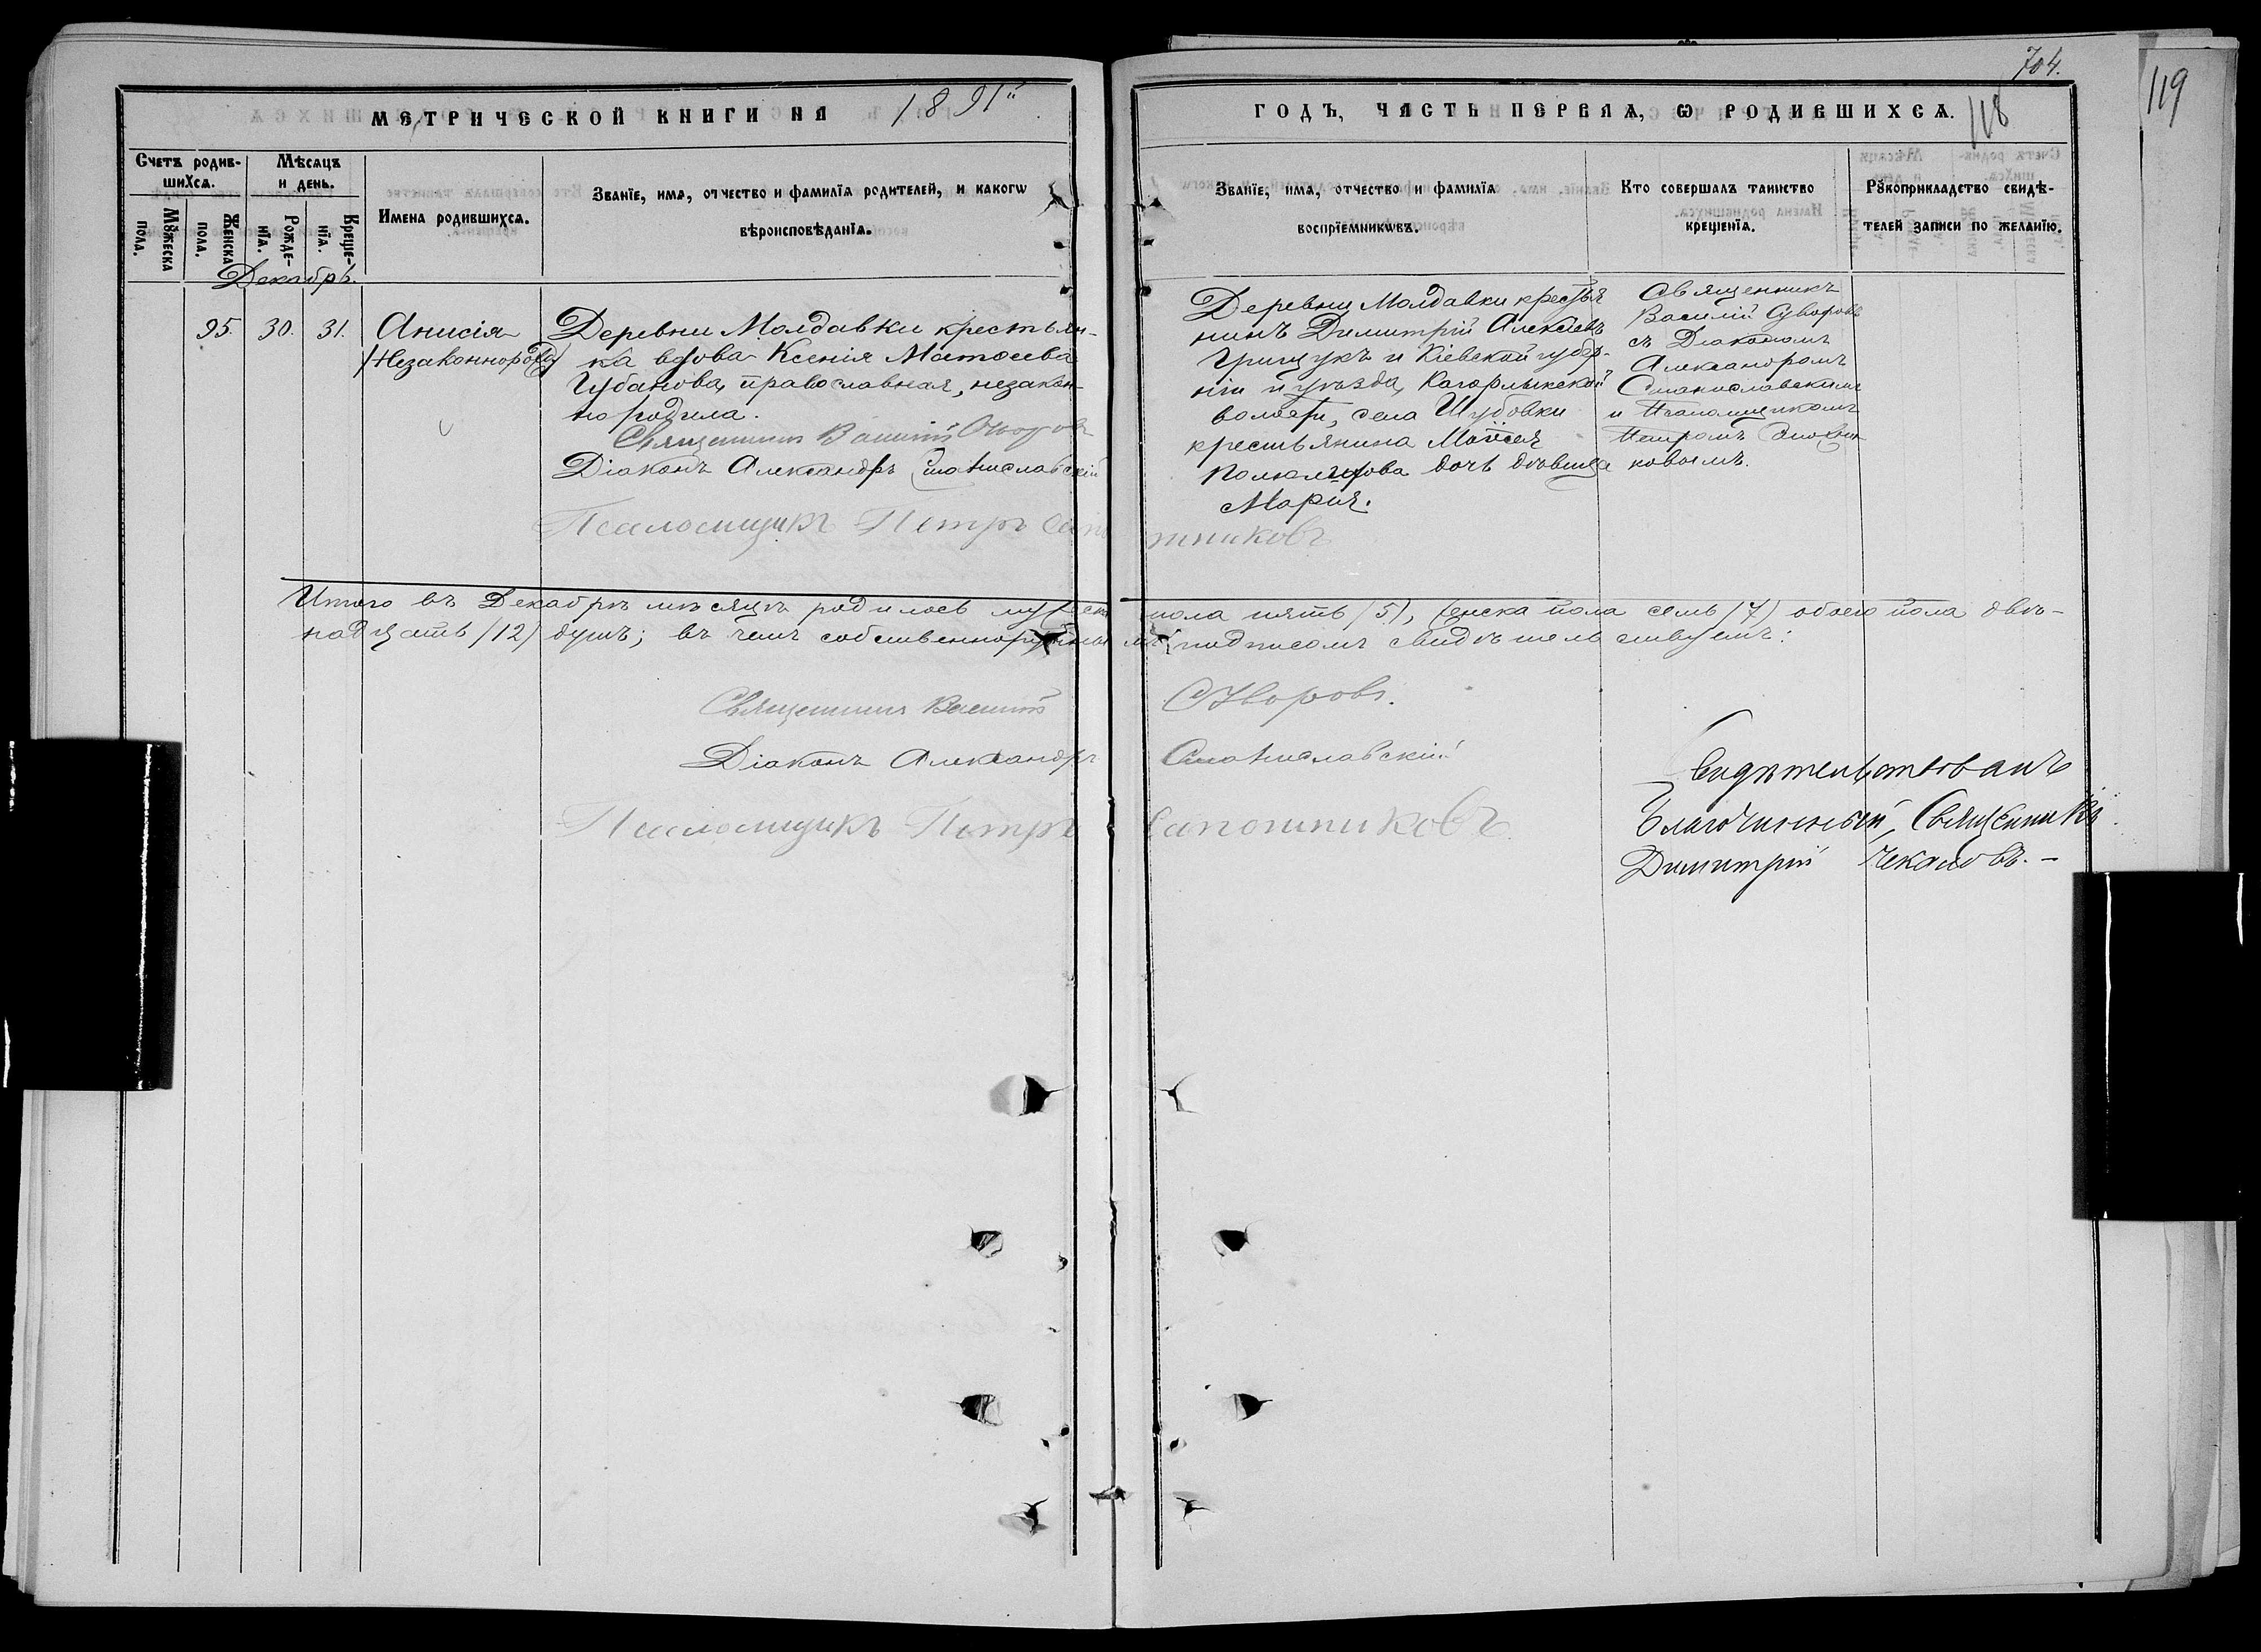 704.
119
118
МЕТРИЧЕСКОЙ КНИГИ НА 1891й
ГОДЪ, ЧАСТЬ ПЕРВАѦ, Ѡ РОДИВШИХСѦ.
Счетъ родив-
шихсѧ.
Мѣсѧцъ
и день.
Мꙋжеска
пола.
Женска
пола.
Рожде-
нїѧ.
Креще-
нїѧ.
Имена родившихсѧ.
Званїе, имѧ, отчество и фамилїѧ родителей, и какогѡ
вѣроисповѣданїѧ.
Званїе, имѧ, отчество и фамилїѧ
воспрїемникѡвъ.
Кто совершалъ таинство
крещенїѧ.
Рꙋкоприкладство свидѣ-
телей записи по желанїю.
Декабрь.
95. 30. 31.
Анисія
/Незаконнорожд/
Деревни Молдавки крестьян-
ка вдова Ксенія Матѳеева
Губанова, православная, незакон-
но родила.
Священникъ Василій Суворовъ
Діаконъ Александръ Станиславскій
Псаломщикъ Петръ Сапожниковъ
Деревни Молдавки крестья
нинъ Димитрій Алексѣевъ
Грицукъ и Кіевской губер-
ніи и уѣзда, Кагарлыкской
волости, села Шубовки
крестьянина Моѵсея
дочь дѣвица
Марія.
Священникъ
Василій Суворовъ
съ Діакономъ
Александромъ
Станиславскимъ
и Псаломщикомъ
Петромъ Сапожни-
ковымъ.
Итого въ Декабрѣ мѣсяцѣ родилось мужеска пола пять /5/, женска пола семь /7/ обоего пола двѣ-
надцать /12/ душъ; въ чемъ собственноручнымъ подписомъ свидѣтельствуемъ:
Священникъ Василій Суворовъ.
Діаконъ Александръ Станиславскій
Псаломщикъ Петръ Сапожниковъ.
Свидѣтельствовалъ
Благочинный, Священникъ
Димитрій Чекаловъ. -